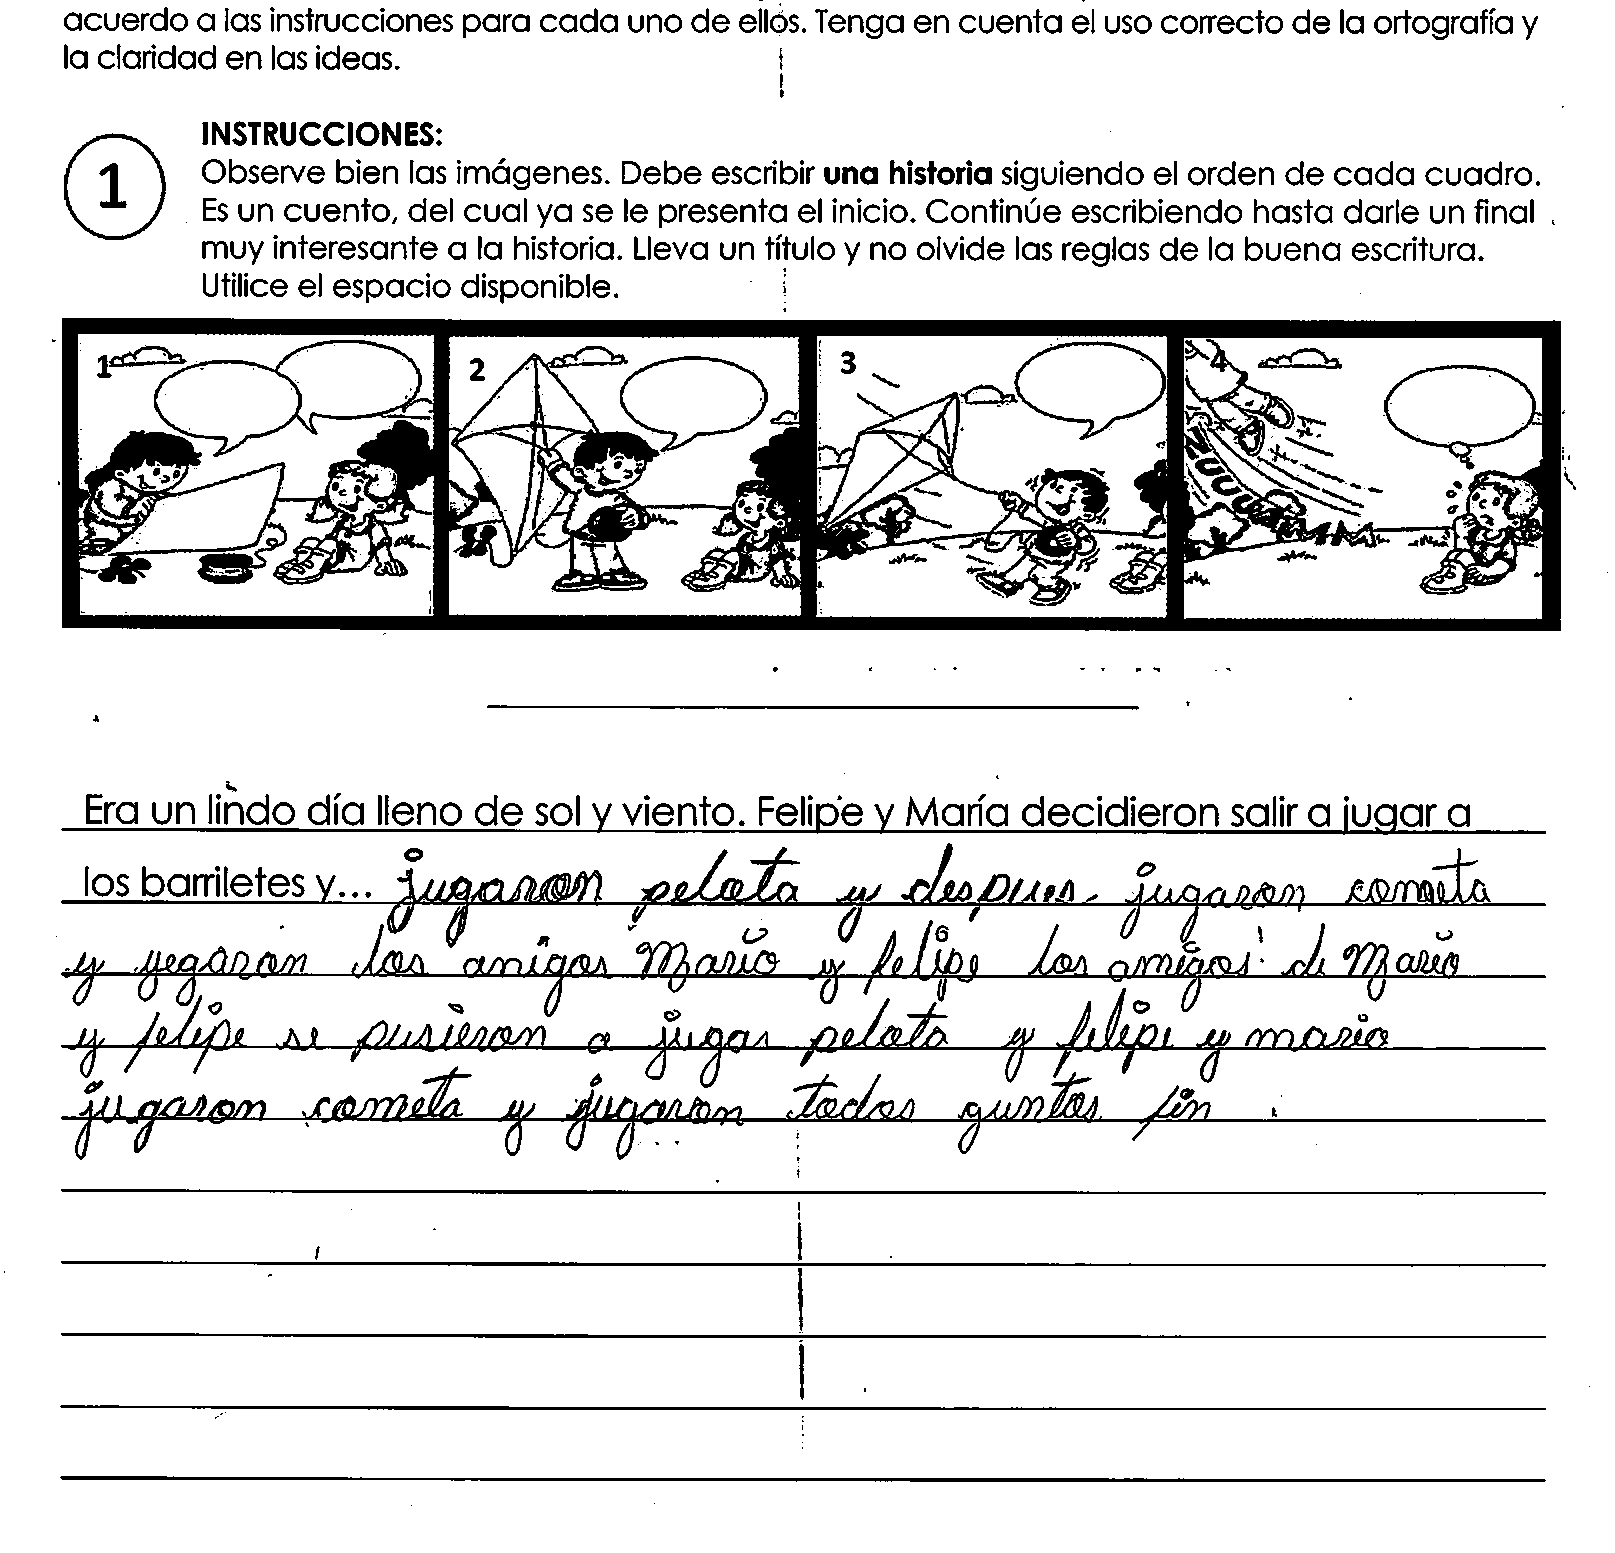 acuerdo a las instrucciones para cada uno de ellos. Tenga en cuenta el uso correcto de la ortografía y
la claridad en las ideas.
1
INSTRUCCIONES:
Observe bien las imágenes. Debe escribir una historia siguiendo el orden de cada cuadro.
Es un cuento, del cual ya se le presenta el inicio. Continúe escribiendo hasta darle un final
muy interesante a la historia. Lleva un título y no olvide las reglas de la buena escritura.
Utilice el espacio disponible.
1 2 3 4
ZUUUMMM
Era un lindo día lleno de sol y viento. Felipe y María decidieron salir a jugar a
los barriletes y... jugaron pelota y despues jugaron cometa
y yegaron los amigos Mario y felipe los amigos de Mario
y felipe se pusieron a jugar pelota y felipe y mario
jugaron cometa y jugaron todos guntos fin.